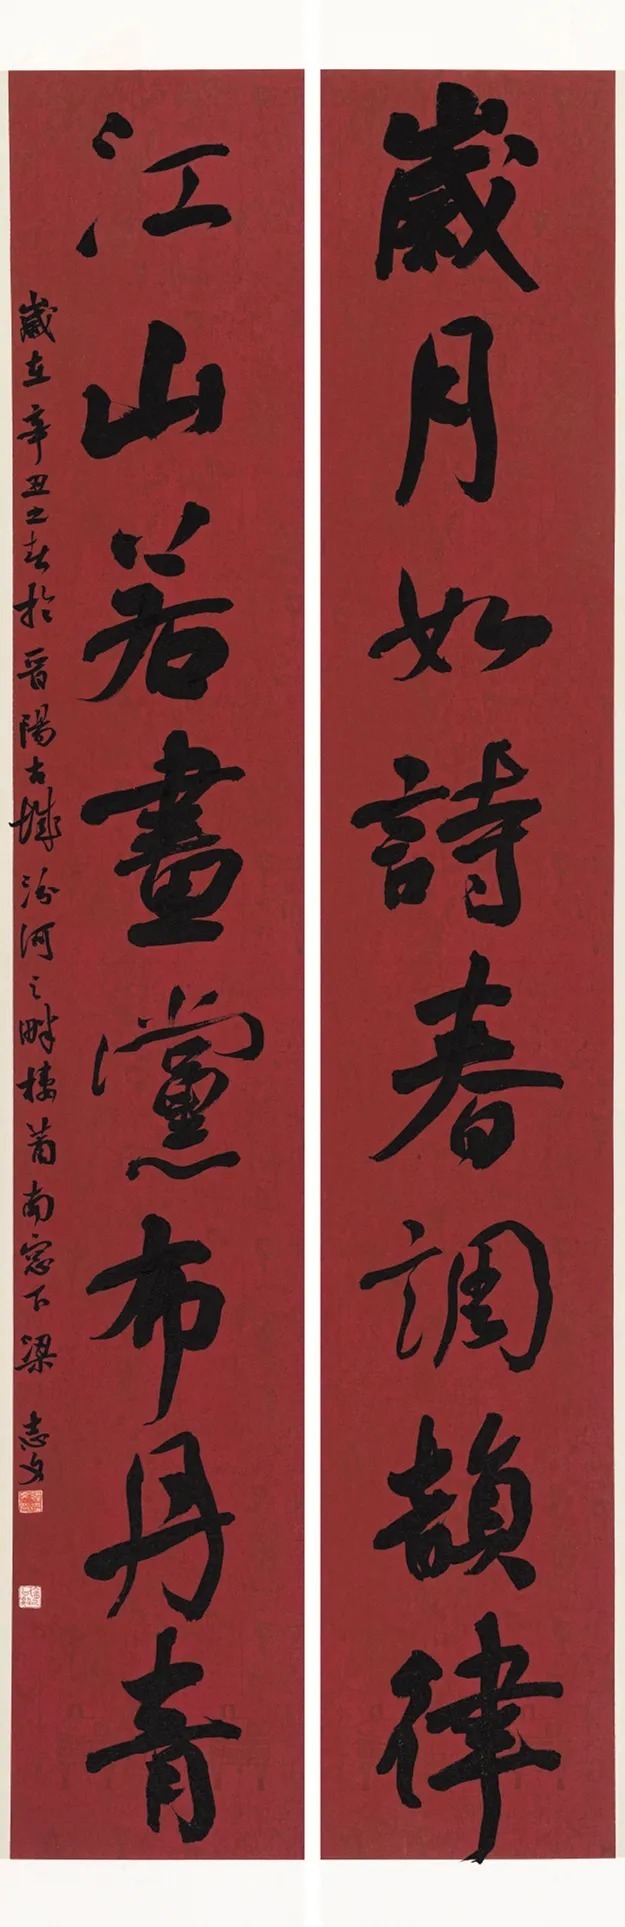 歲月如詩春調韻律
江山若畫黨布丹青
歲在辛丑之春於晉陽古城汾河之畔棲莆南窓下梁志文